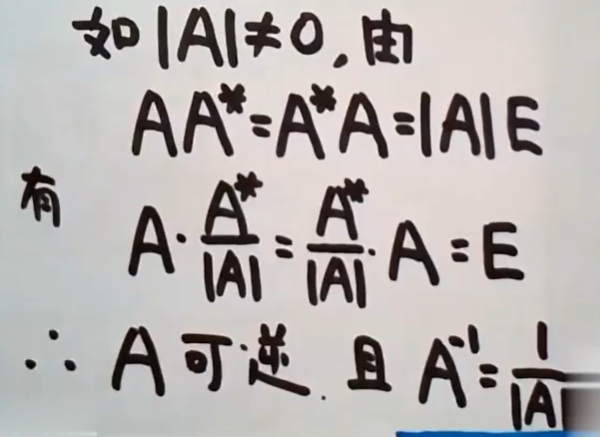 如|A|≠0,由
AA*=A*A=|A|E
有 A·A*/|A|=A*/|A|·A=E
∴ A可逆.且 A⁻¹=1/|A